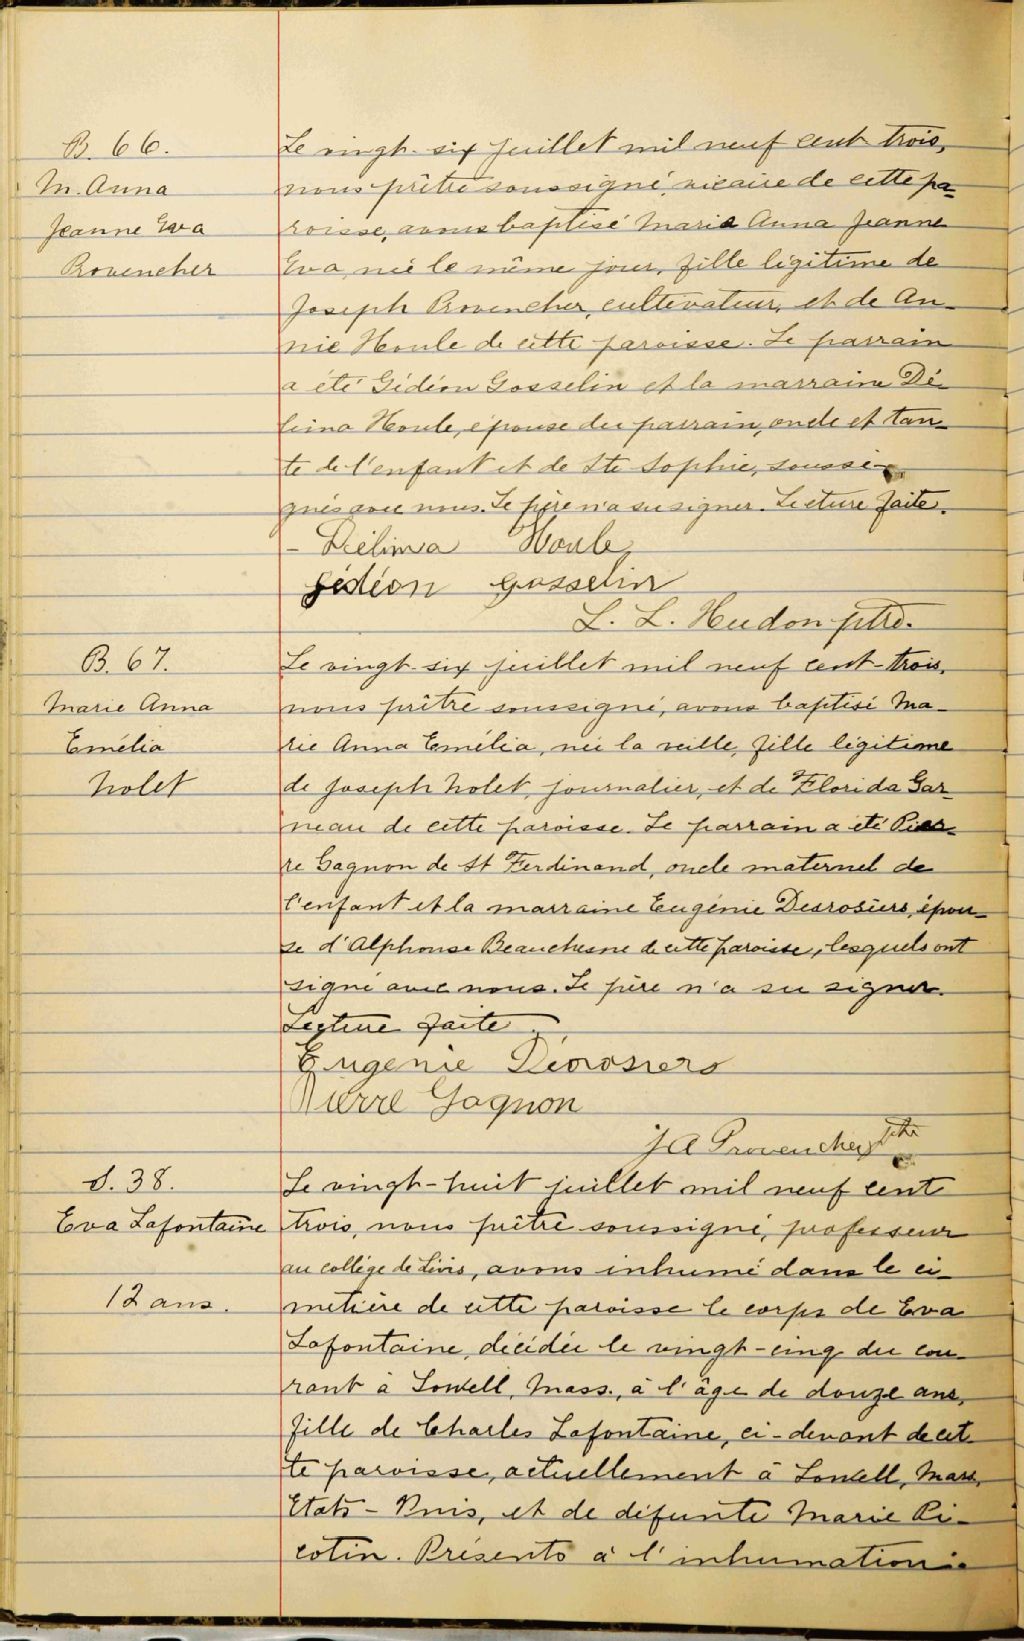 B. 66.
M. Anna
Jeanne Eva
Provencher
Le vingt-six juillet mil neuf cent trois,
nous prêtre soussigné, vicaire de cette pa-
roisse, avons baptisé Marie Anna Jeanne
Eva, née le même jour, fille légitime de
Joseph Provencher, cultivateur, et de An-
nie Houle de cette paroisse. Le parrain
a été Gédéon Gosselin et la marraine Dé-
lima Houle, épouse du parrain, oncle et tan-
te de l'enfant et de Ste Sophie, soussi-
gnés avec nous. Le père n'a su signer. Lecture faite.
- Délima Houle
Gédéon Gosselin
L. L. Hudon ptre.
B. 67.
Marie Anna
Emélia
Nolet
Le vingt-six juillet mil neuf cent-trois,
nous prêtre soussigné, avons baptisé Ma-
rie Anna Emélia, née la veille, fille légitime
de Joseph Nolet, journalier, et de Florida Gar-
neau de cette paroisse. Le parrain a été Pier-
re Gagnon de St Ferdinand, oncle maternel de
l'enfant et la marraine Eugénie Desrosiers, épou-
se d'Alphonse Beauchesne de cette paroisse, lesquels ont
signé avec nous. Le père n'a su signer.
Lecture faite.
Eugenie Désrosiers
Pierre Gagnon
J A Provencher ptre
S. 38.
Eva Lafontaine
12 ans.
Le vingt-huit juillet mil neuf cent
trois, nous prêtre soussigné, professeur
au collége de Lévis, avons inhumé dans le ci-
metière de cette paroisse le corps de Eva
Lafontaine, décédée le vingt-cinq du cou-
rant à Lowell, Mass., à l'âge de douze ans,
fille de Charles Lafontaine, ci-devant de cet-
te paroisse, actuellement à Lowell, Mass,
Etats-Unis, et de défunte Marie Pi-
cotin. Présents à l'inhumation: